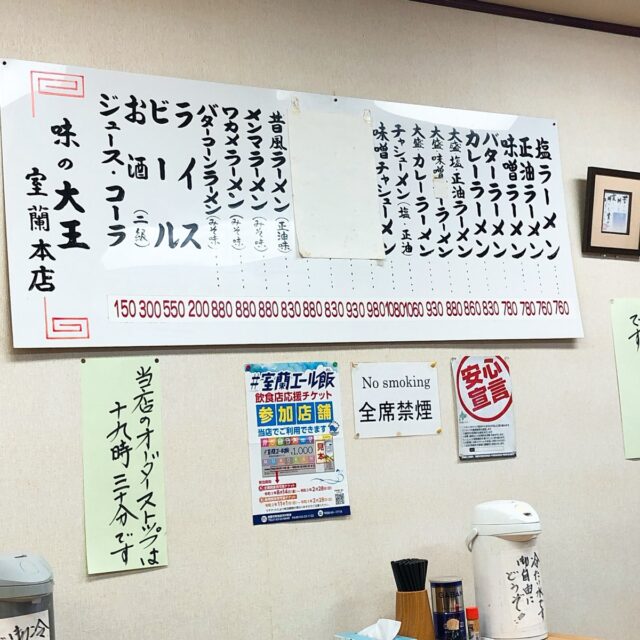 塩ラーメン
正油ラーメン
味噌ラーメン
バターラーメン
カレーラーメン
大盛塩正油ラーメン
大盛味噌ラーメン
大盛カレーラーメン
チャシューメン(塩・正油)
味噌チャシューメン
昔風ラーメン(正油味)
メンマラーメン(みそ味)
ワカメラーメン(みそ味)
バターコーンラーメン(みそ味)
ライス
ビール
お酒(二級)
ジュース・コーラ
味の大王
室蘭本店
150 300 550 200 880 880 880 830 880 830 930 980 1080 1060 930 880 860 830 780 780 760 760
当店のオーダーストップは
十九時三十分です
#室蘭エール飯
飲食店応援チケット
参加店舗
当店でご利用できます
¥1,000
見本
No smoking
全席禁煙
安心
宣言
です
冷たい水です
御自由に
どうぞ